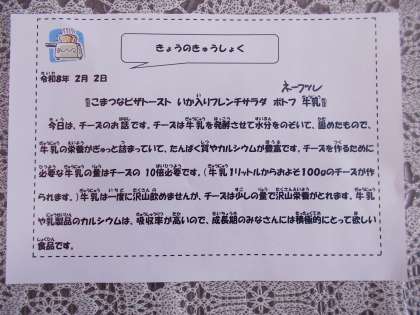 きょうのきゅうしょく
令和8年 2月 2日
ネーブル
こまつなピザトースト いか入りフレンチサラダ ポトフ 牛乳
今日は、チーズのお話です。チーズは牛乳を発酵させて水分をのぞいて、固めたもので、
牛乳の栄養がぎゅっと詰まっていて、たんぱく質やカルシウムが豊富です。チーズを作るために
必要な牛乳の量はチーズの 10倍必要です。(牛乳1リットルからおよそ100gのチーズが作
られます。)牛乳は一度に沢山飲めませんが、チーズは少しの量で沢山栄養がとれます。牛乳
や乳製品のカルシウムは、吸収率が高いので、成長期のみなさんには積極的にとって欲しい
食品です。